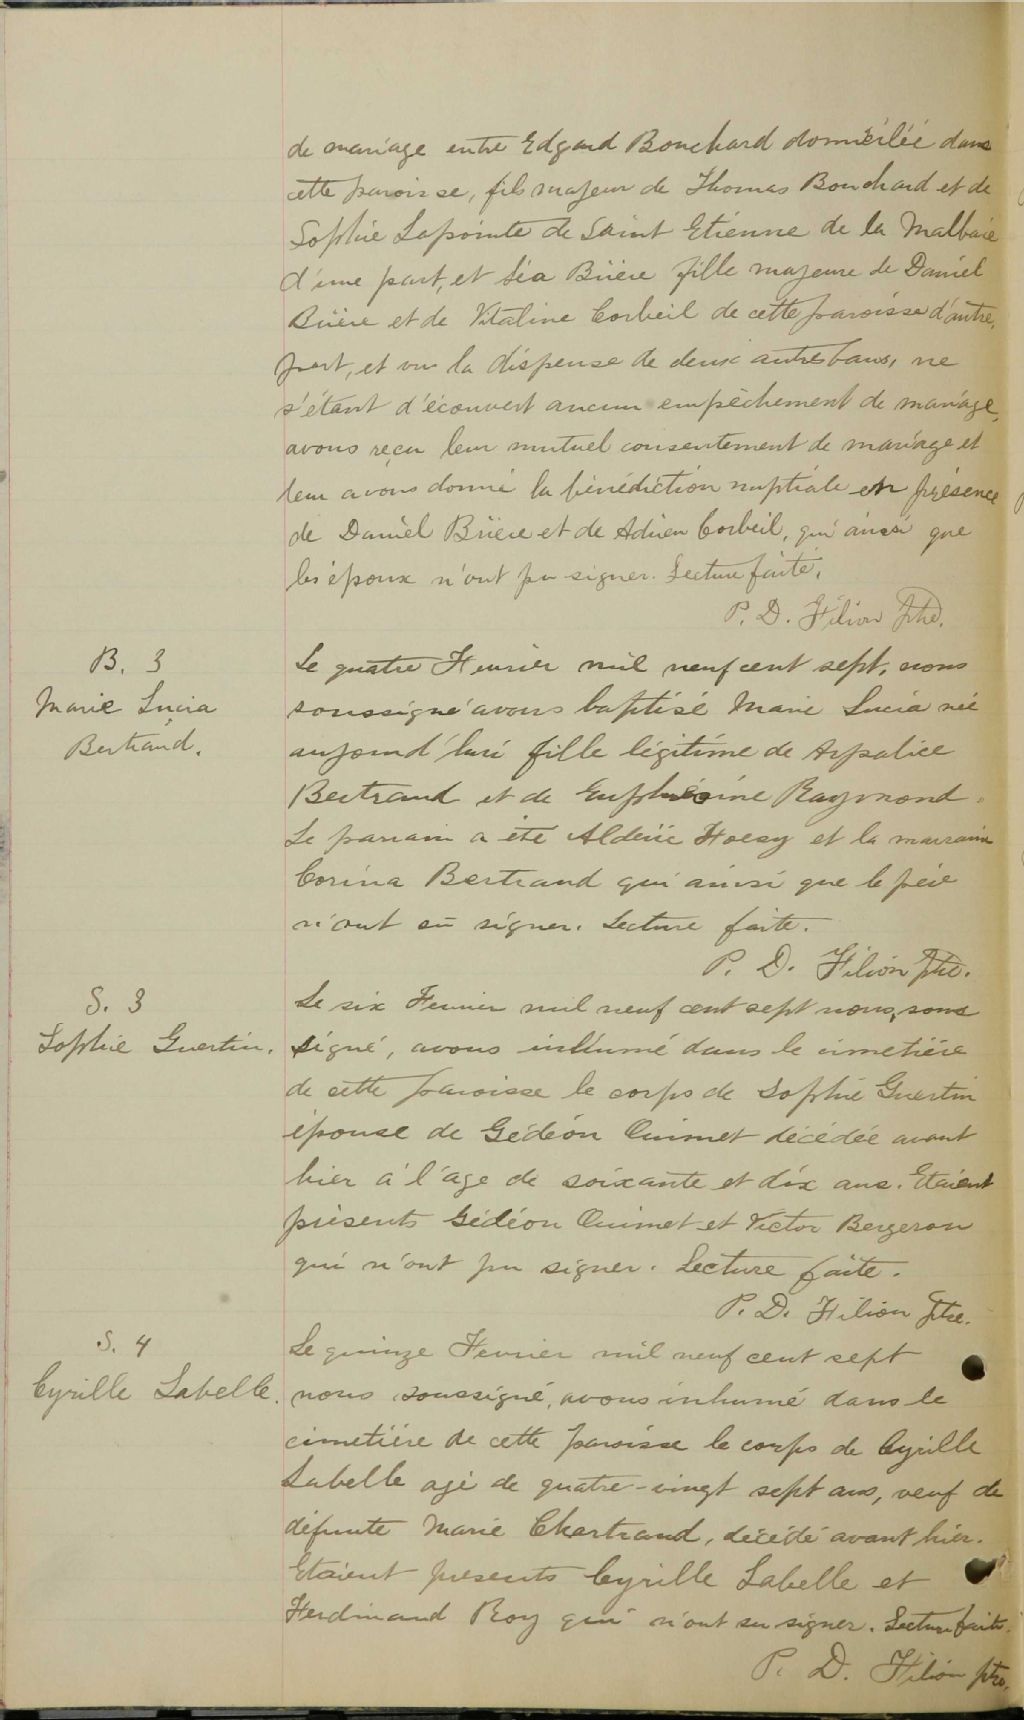 de mariage entre Edgard Bouchard domicilée dans
cette paroisse, fils majeur de Thomas Bouchard et de
Sophie Lapointe de Saint Etienne de la Malbaie
d'une part, et Léa Brière fille majeure de Daniel
Brière et de Vitaline Corbeil de cette paroisse d'autre,
part, et vu la dispense de deux autres bans, ne
s'étant d'écouvert aucun empêchement de mariage,
avons reçu leur mutuel consentement de mariage et
leur avons donné la bénédiction nuptiale en présence
de Daniel Brière et de Adrien Corbeil, qui ainsi que
les époux n'ont pu signer. Lecture faite.
P. D. Filion Ptre.
B. 3
Marie Lucia
Bertrand.
Le quatre Fevrier mil neuf cent sept, nous
soussigné avons baptisé Marie Lucia née
aujourd'hui fille légitime de Arpalice
Bertrand et de Euphrosine Raymond.
Le parrain a été Alderic Foesy et la marraine
Corina Bertrand qui ainsi que le père
n'ont su signer. Lecture faite.
P. D. Filion Ptre.
S. 3
Sophie Guertin.
Le six Fevrier mil neuf cent sept nous, sous
signé, avons inhumé dans le cimetière
de cette paroisse le corps de Sophie Guertin
épouse de Gédéon Ouimet décédée avant
hier à l'age de soixante et dix ans. Etaient
présents Gédéon Ouimet et Victor Bergeron
qui n'ont pu signer. Lecture faite.
P. D. Filion Ptre.
S. 4
Cyrille Labelle.
Le quinze Fevrier mil neuf cent sept
nous soussigné, avons inhumé dans le
cimetière de cette paroisse le corps de Cyrille
Labelle agé de quatre-vingt sept ans, veuf de
défunte Marie Chartrand, décédé avant hier.
Etaient présents Cyrille Labelle et
Ferdinand Roy qui n'ont su signer. Lecture faite.
P. D. Filion ptre.